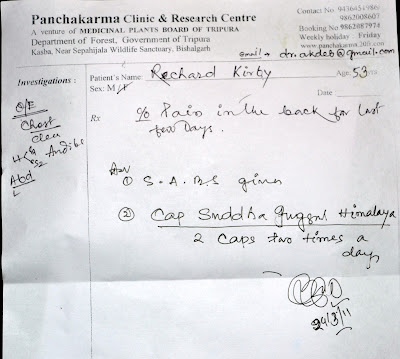 Panchakarma Clinic & Research Centre
A venture of MEDICINAL PLANTS BOARD OF TRIPURA
Department of Forest, Government of Tripura
Kasba, Near Sepahijala Wildlife Sanctuary, Bishalgarh
Contact No
Booking No 9862087974
Weekly holiday Friday
www.panchakarma.20m.com
Email → dr.akdeb@gmail.com
Investigations :
Patient's Name Rechard Kirby
Age: 53 yrs
Sex: M/F
Date
O/E
Chest
clear
S1
S2 Audible
Abd
L
Rx
c/o Pain in the back for last
few Days.
Adv
① S.A.B.S given
② Cap Suddha Guggul Himalaya
2 caps two times a
days
24/3/11